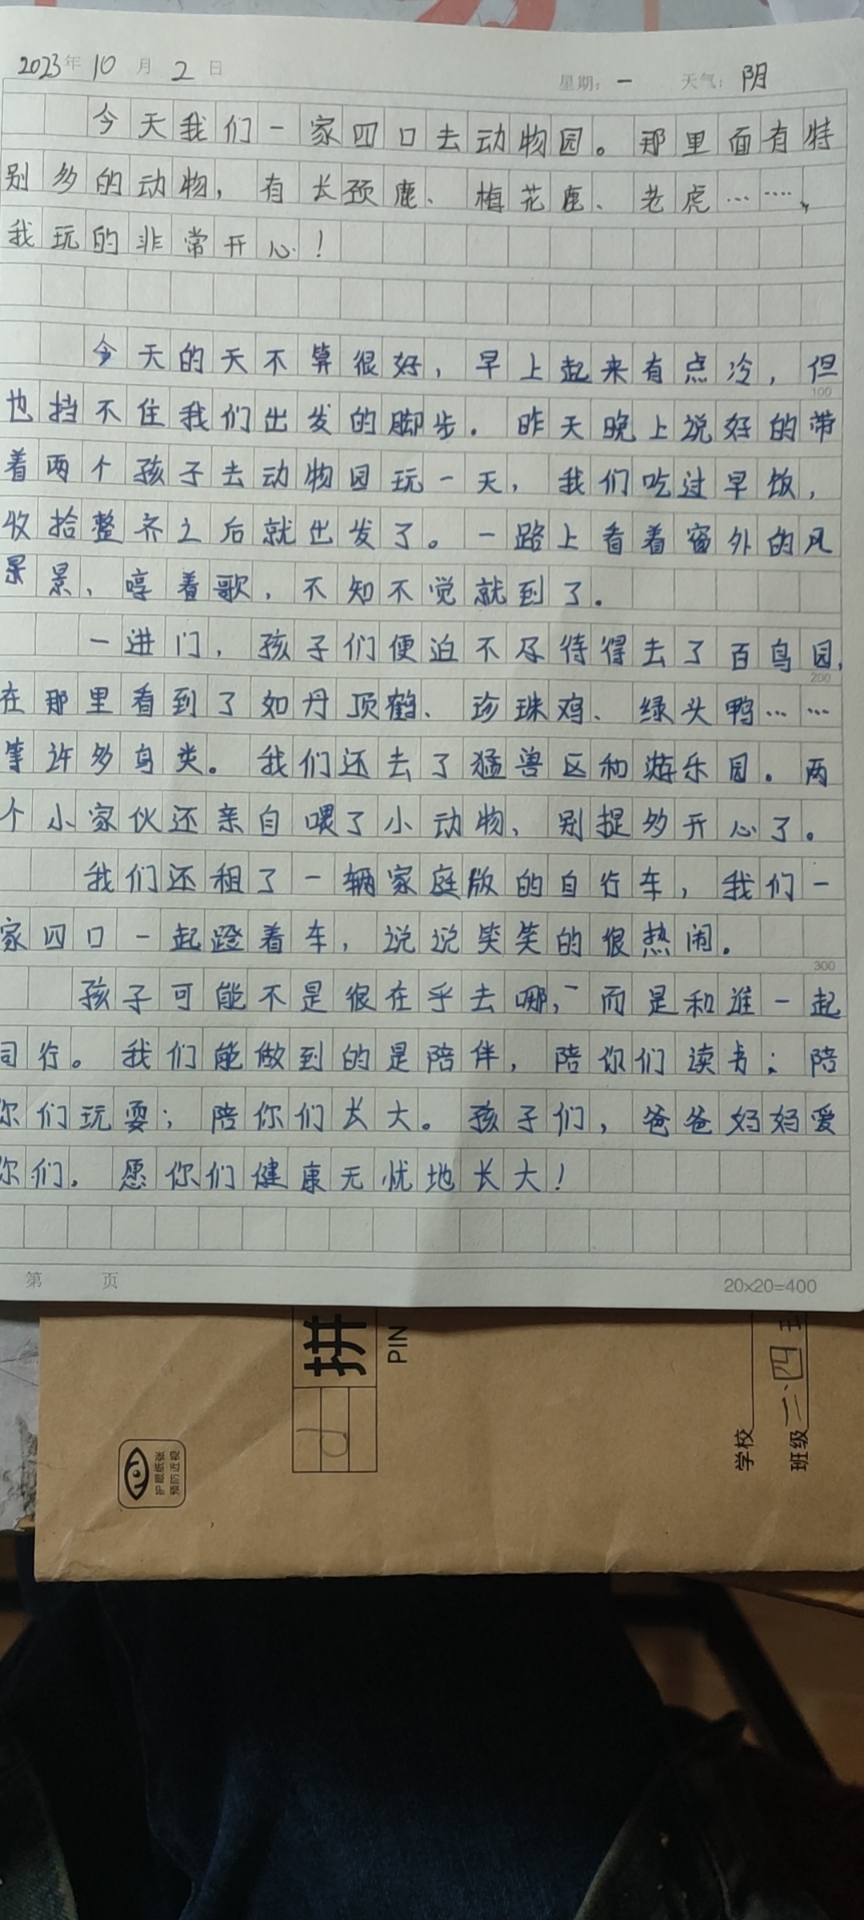 2023年10月2日 星期：一 天气：阴
今天我们一家四口去动物园。那里面有特
别多的动物，有长颈鹿、梅花鹿、老虎……，
我玩的非常开心！
今天的天不算很好，早上起来有点冷，但
100
也挡不住我们出发的脚步．昨天晚上说好的带
着两个孩子去动物园玩一天，我们吃过早饭，
收拾整齐之后就出发了。一路上看着窗外的风
景、哼着歌，不知不觉就到了．
一进门，孩子们便迫不及待得去了百鸟园，
200
在那里看到了如丹顶鹤、珍珠鸡、绿头鸭……
等许多鸟类。我们还去了猛兽区和游乐园．两
个小家伙还亲自喂了小动物、别提多开心了。
我们还租了一辆家庭版的自行车，我们一
家四口一起蹬着车，说说笑笑的很热闹．
300
孩子可能不是很在乎去哪，而是和谁一起
同行。我们能做到的是陪伴，陪你们读书；陪
你们玩耍；陪你们长大。孩子们，爸爸妈妈爱
你们．愿你们健康无忧地长大！
第 页 20×20=400
拼
PIN
d
护眼纸张
预防近视
学校
班级 三、四